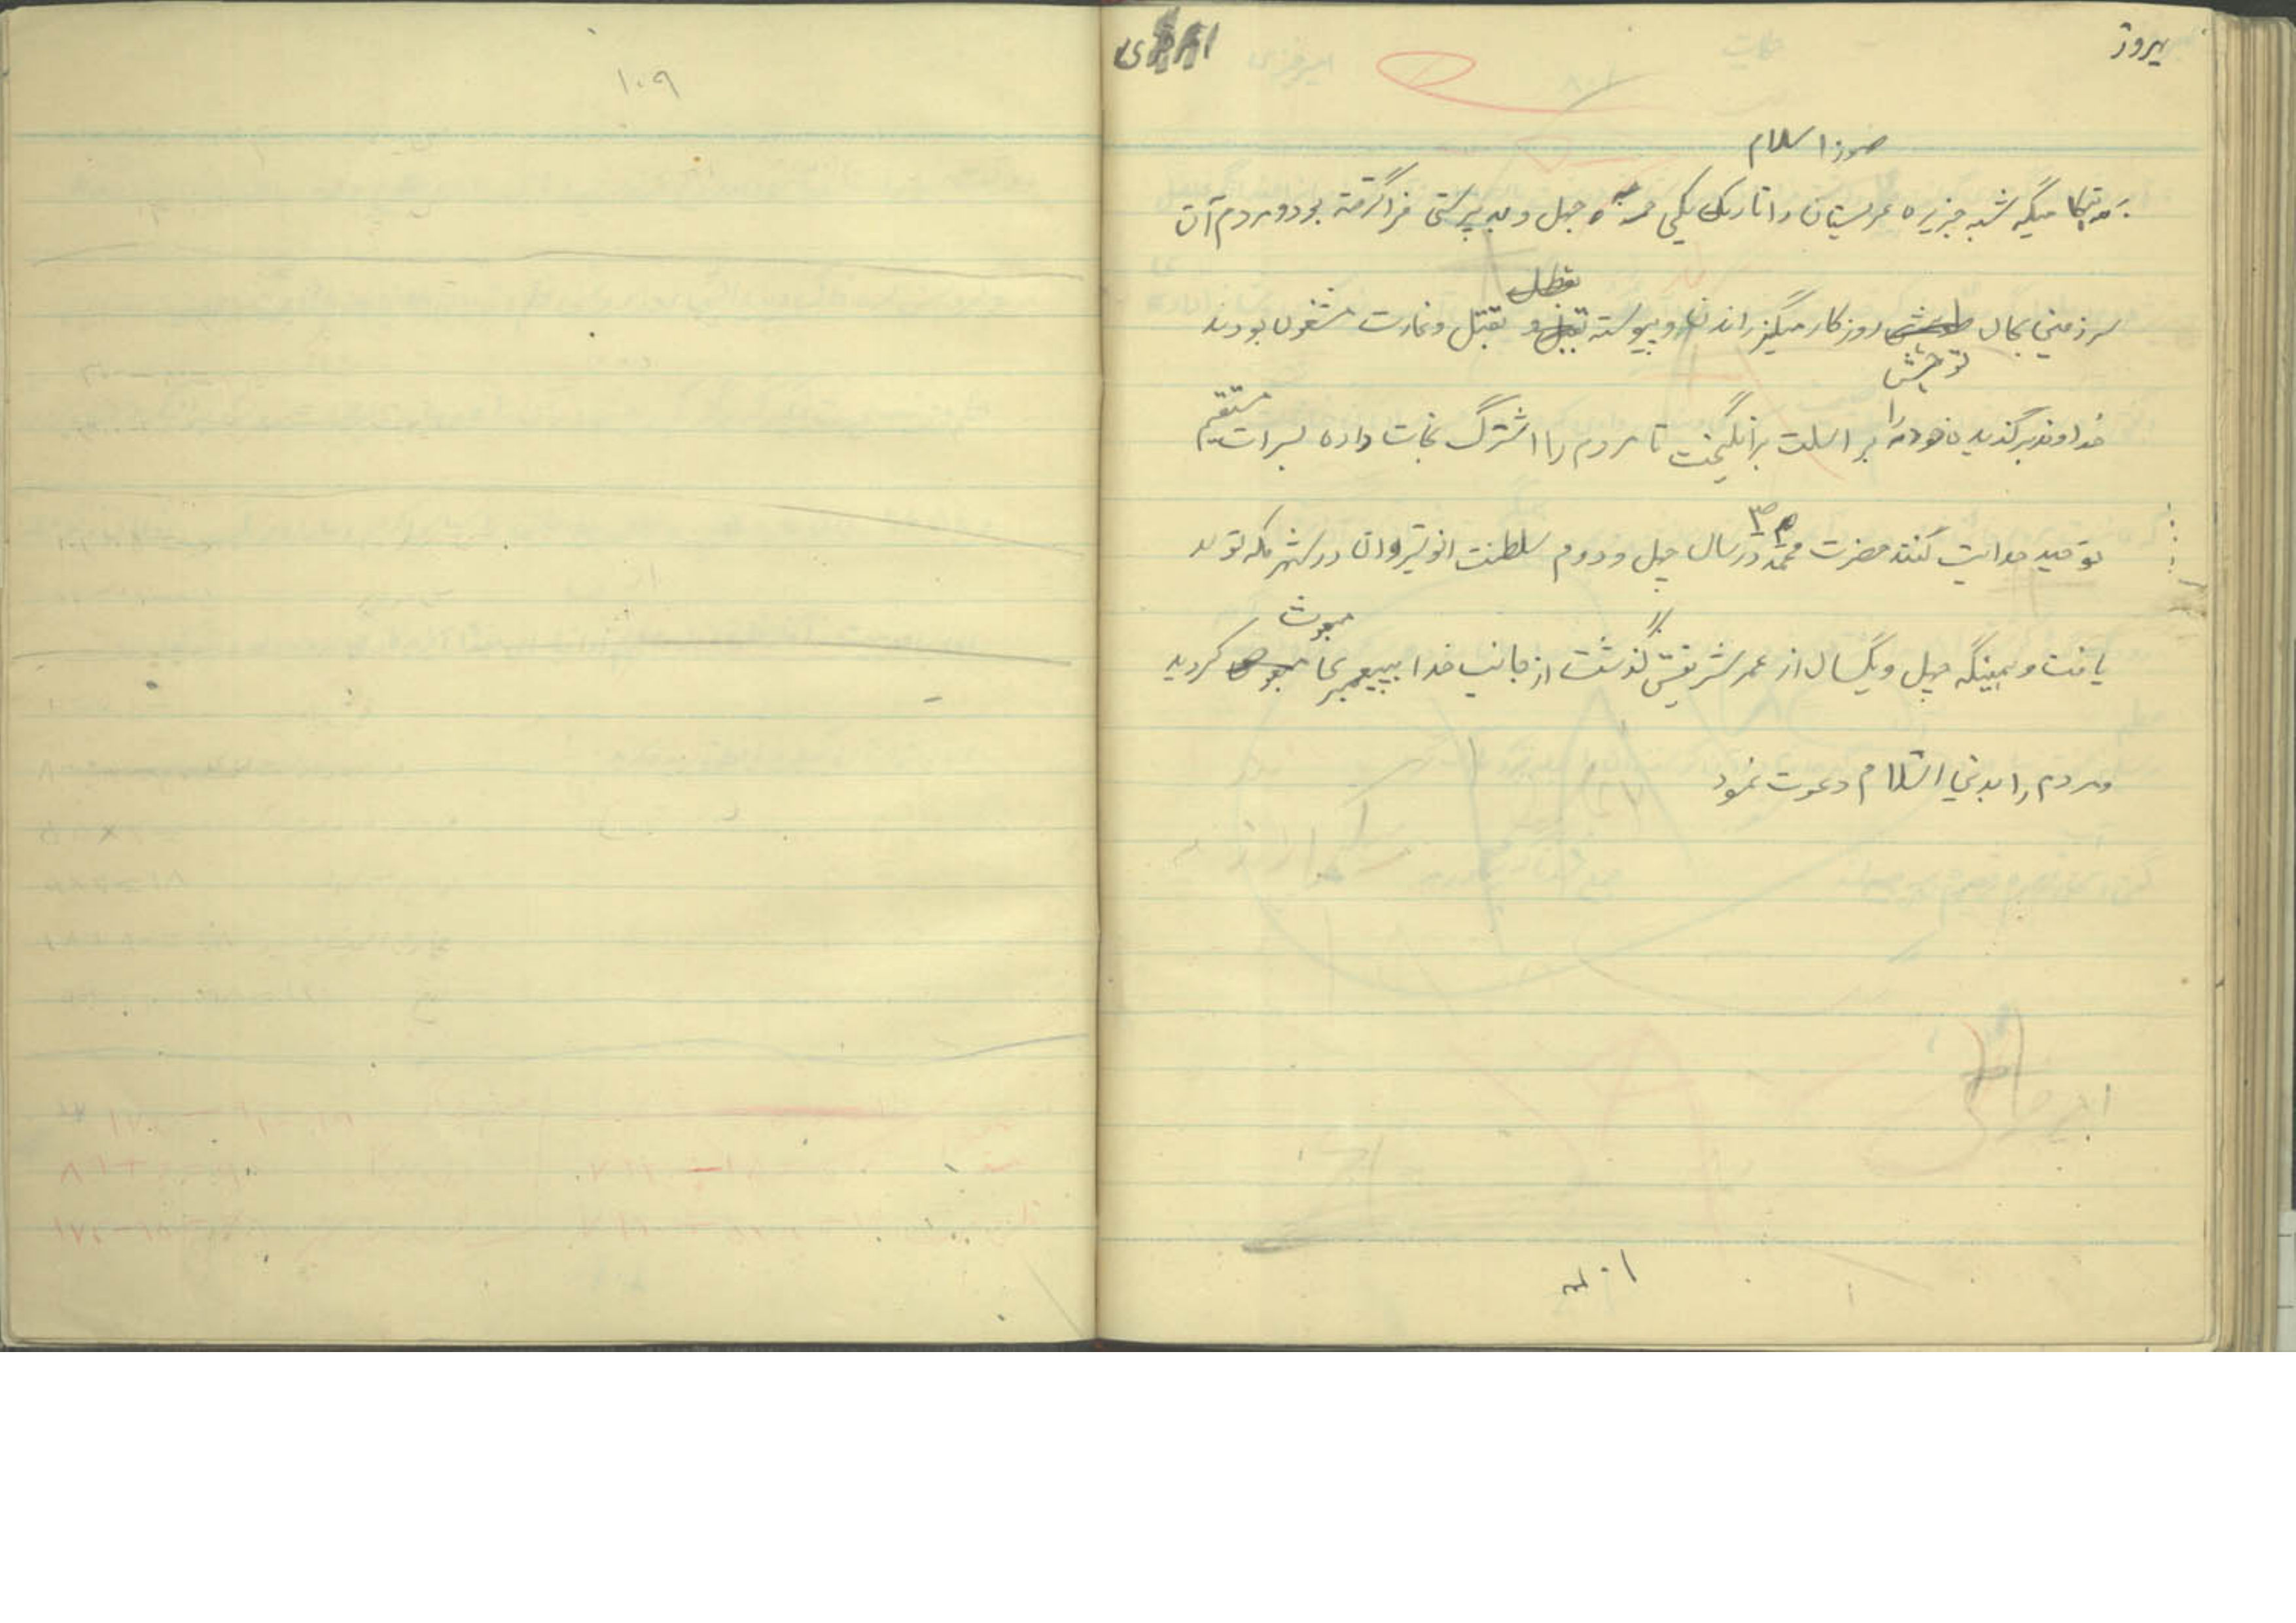 پیروز
صور اسلام
میگه شبه جزیره عربستان را تاریک یکی جهل و بد پرستی فرا گرفته بود و مردم آن
سرزمینی بحال توحش روزکار میگیزراندند و پیوسته بقتل و غارت مشغول بودند
خداوند برگذیده خود را بر اسلت برانگیخت تا مردم را اشترگ نجات داده بسرات مستقیم
توحید هدایت کنند حضرت محمد ص در سال چهل و دوم سلطنت انوشیروان در شهر مکه تولد
یافت و همینگه چهل و یگسال از عمر شریفش گذشت از جانب خدا بپیغمبری مبعوث گردید
ومردم را بدنی اسلام دعوت نمود
۱۰۹